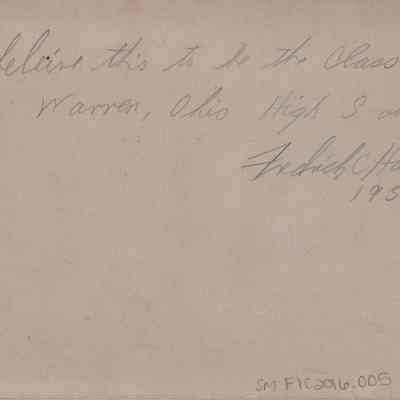 beleive this to be the Class
Warren, Ohio High S
Fredrich C Ha
195
SM-FIC2016.005